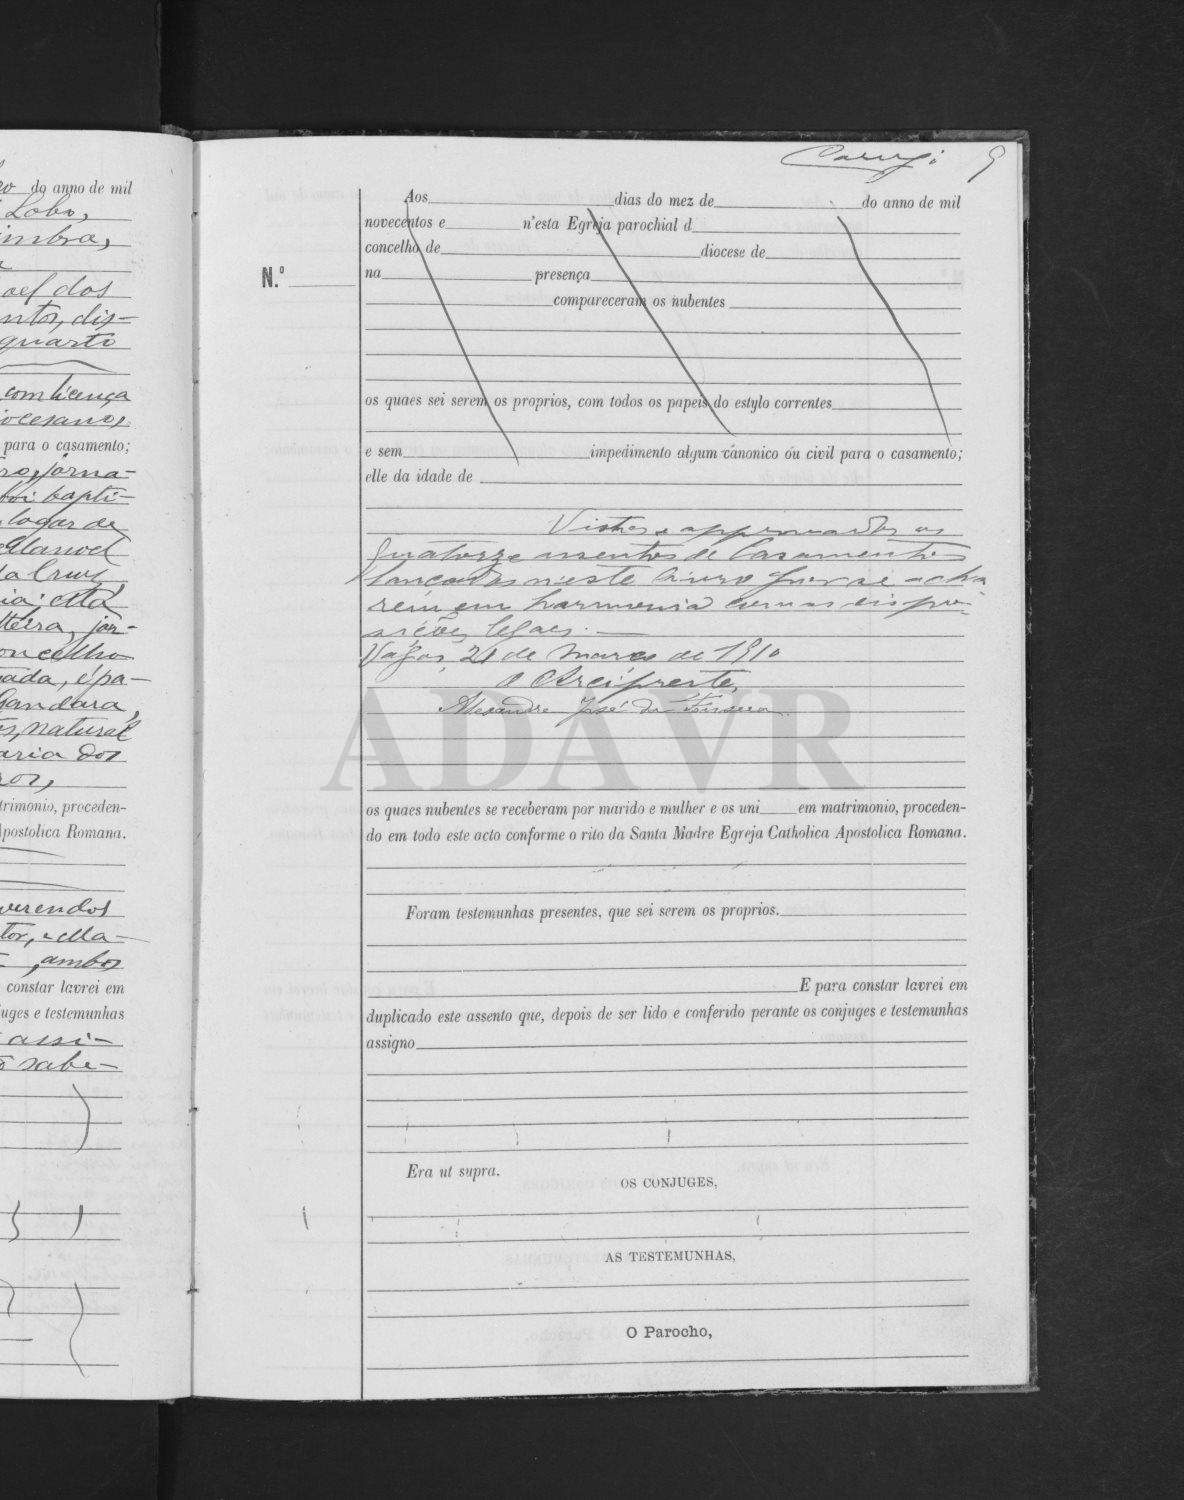 ro do anno de mil
Lobo,
imbra,
ael dos
ntos, dis-
quarto
com licença
iocesano,
para o casamento;
ro, jorna-
foi bapti-
logar de
Manoel
da Cruz,
ia: Ma
lteira, jor-
oncelho
ada, é pa-
Gandara,
s, natural
aria dos
ros,
trimonio, proceden-
Apostolica Romana.
verendos
tor, e Ma-
, ambos
constar lavrei em
uges e testemunhas
assi-
sabe-
9
Aos dias do mez de do anno de mil
novecentos e n'esta Egreja parochial d
concelho de diocese de
N.º na presença
compareceram os nubentes
os quaes sei serem os proprios, com todos os papeis do estylo correntes
e sem impedimento algum canonico ou civil para o casamento;
elle da idade de
Vistos e approvados os
quatorze assentos de Casamentos
lançados n'este livro por se acha
rem em harmonia com as dispo-
sições legaes. —
Vagos, 21 de Março de 1910
O Arcipreste,
Alexandre José da Fonseca
ADAVR
os quaes nubentes se receberam por marido e mulher e os uni em matrimonio, proceden-
do em todo este acto conforme o rito da Santa Madre Egreja Catholica Apostolica Romana.
Foram testemunhas presentes, que sei serem os proprios.
E para constar lavrei em
duplicado este assento que, depois de ser lido e conferido perante os conjuges e testemunhas
assigno
Era ut supra.
OS CONJUGES,
AS TESTEMUNHAS,
O Parocho,